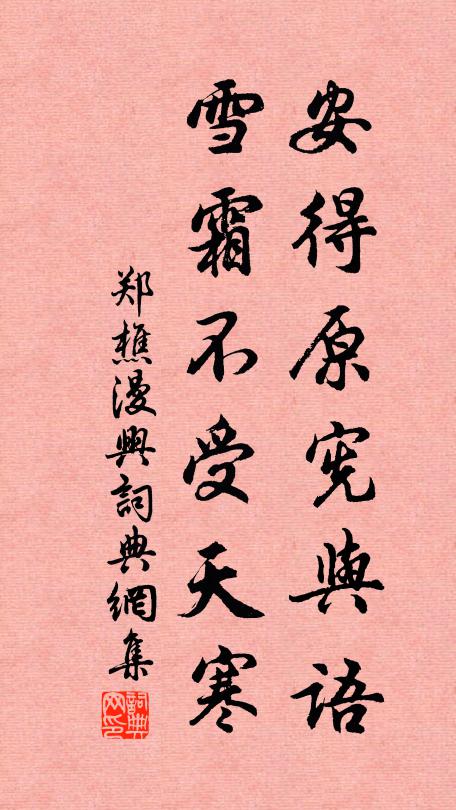 安得原宪與語
雪霜不受天寒
郑樵漫興詞典網集
詞典网印